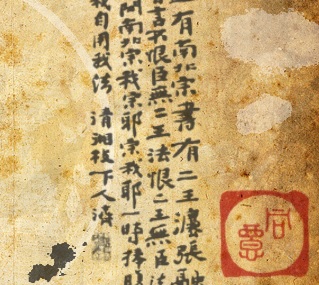 有南北宗書有二王法張融
言不恨臣無二王法恨二王無臣法
問南北宗我宗耶宗我耶一時捧腹
我自用我法 清湘枝下人濟